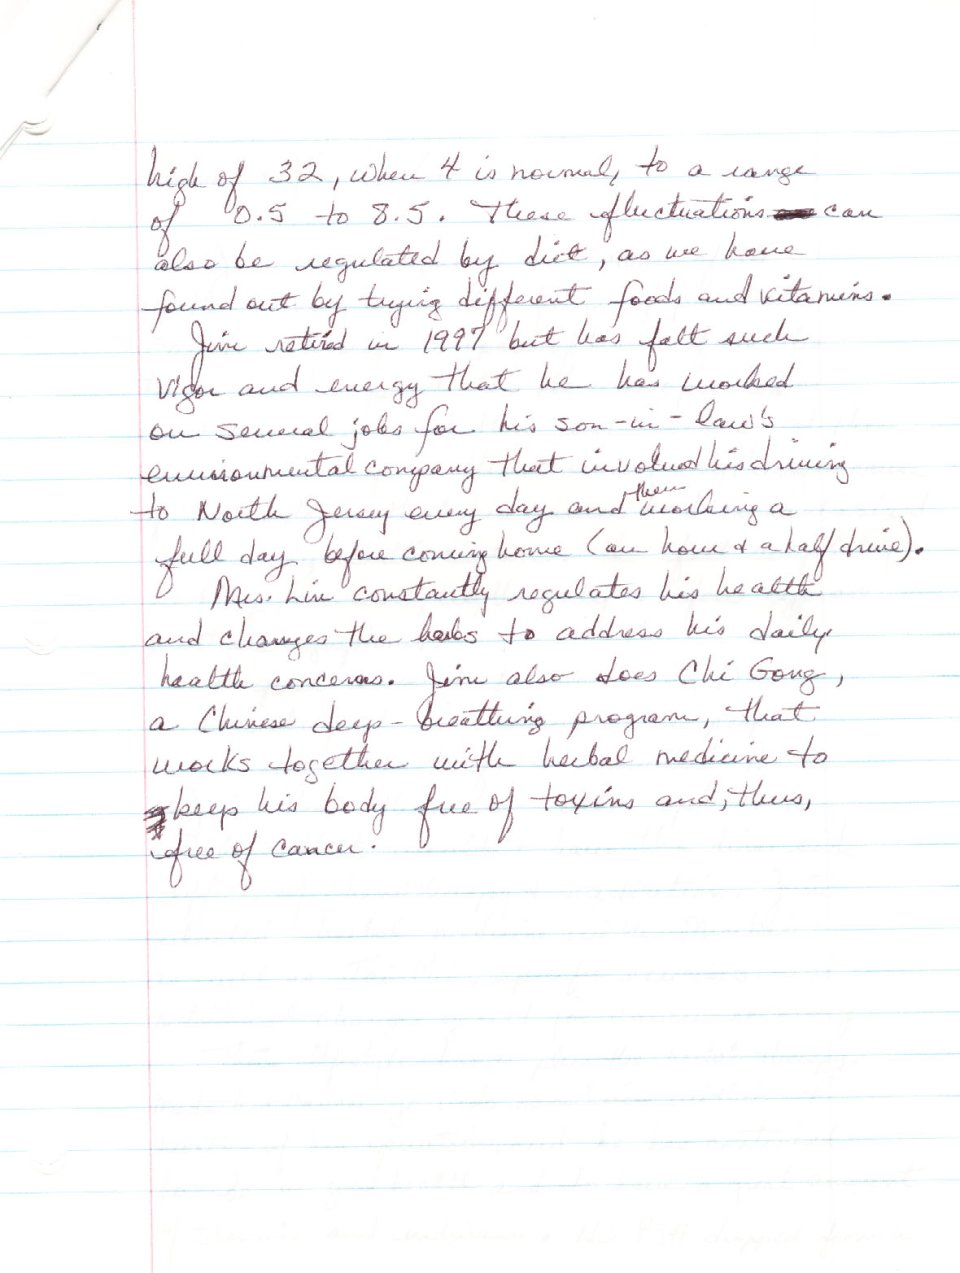 high of 32, when 4 is normal, to a range
of 0.5 to 8.5. These fluctuations can
also be regulated by diet, as we have
found out by trying different foods and vitamins.
Jim retired in 1997 but has felt such
vigor and energy that he has worked
on several jobs for his son-in-law's
environmental company that involved his driving
to North Jersey every day and then working a
full day before coming home (an hour & a half drive).
Mrs. Lin constantly regulates his health
and changes the herbs to address his daily
health concerns. Jim also does Chi Gong,
a Chinese deep-breathing program, that
works together with herbal medicine to
keep his body free of toxins and, thus,
free of cancer.